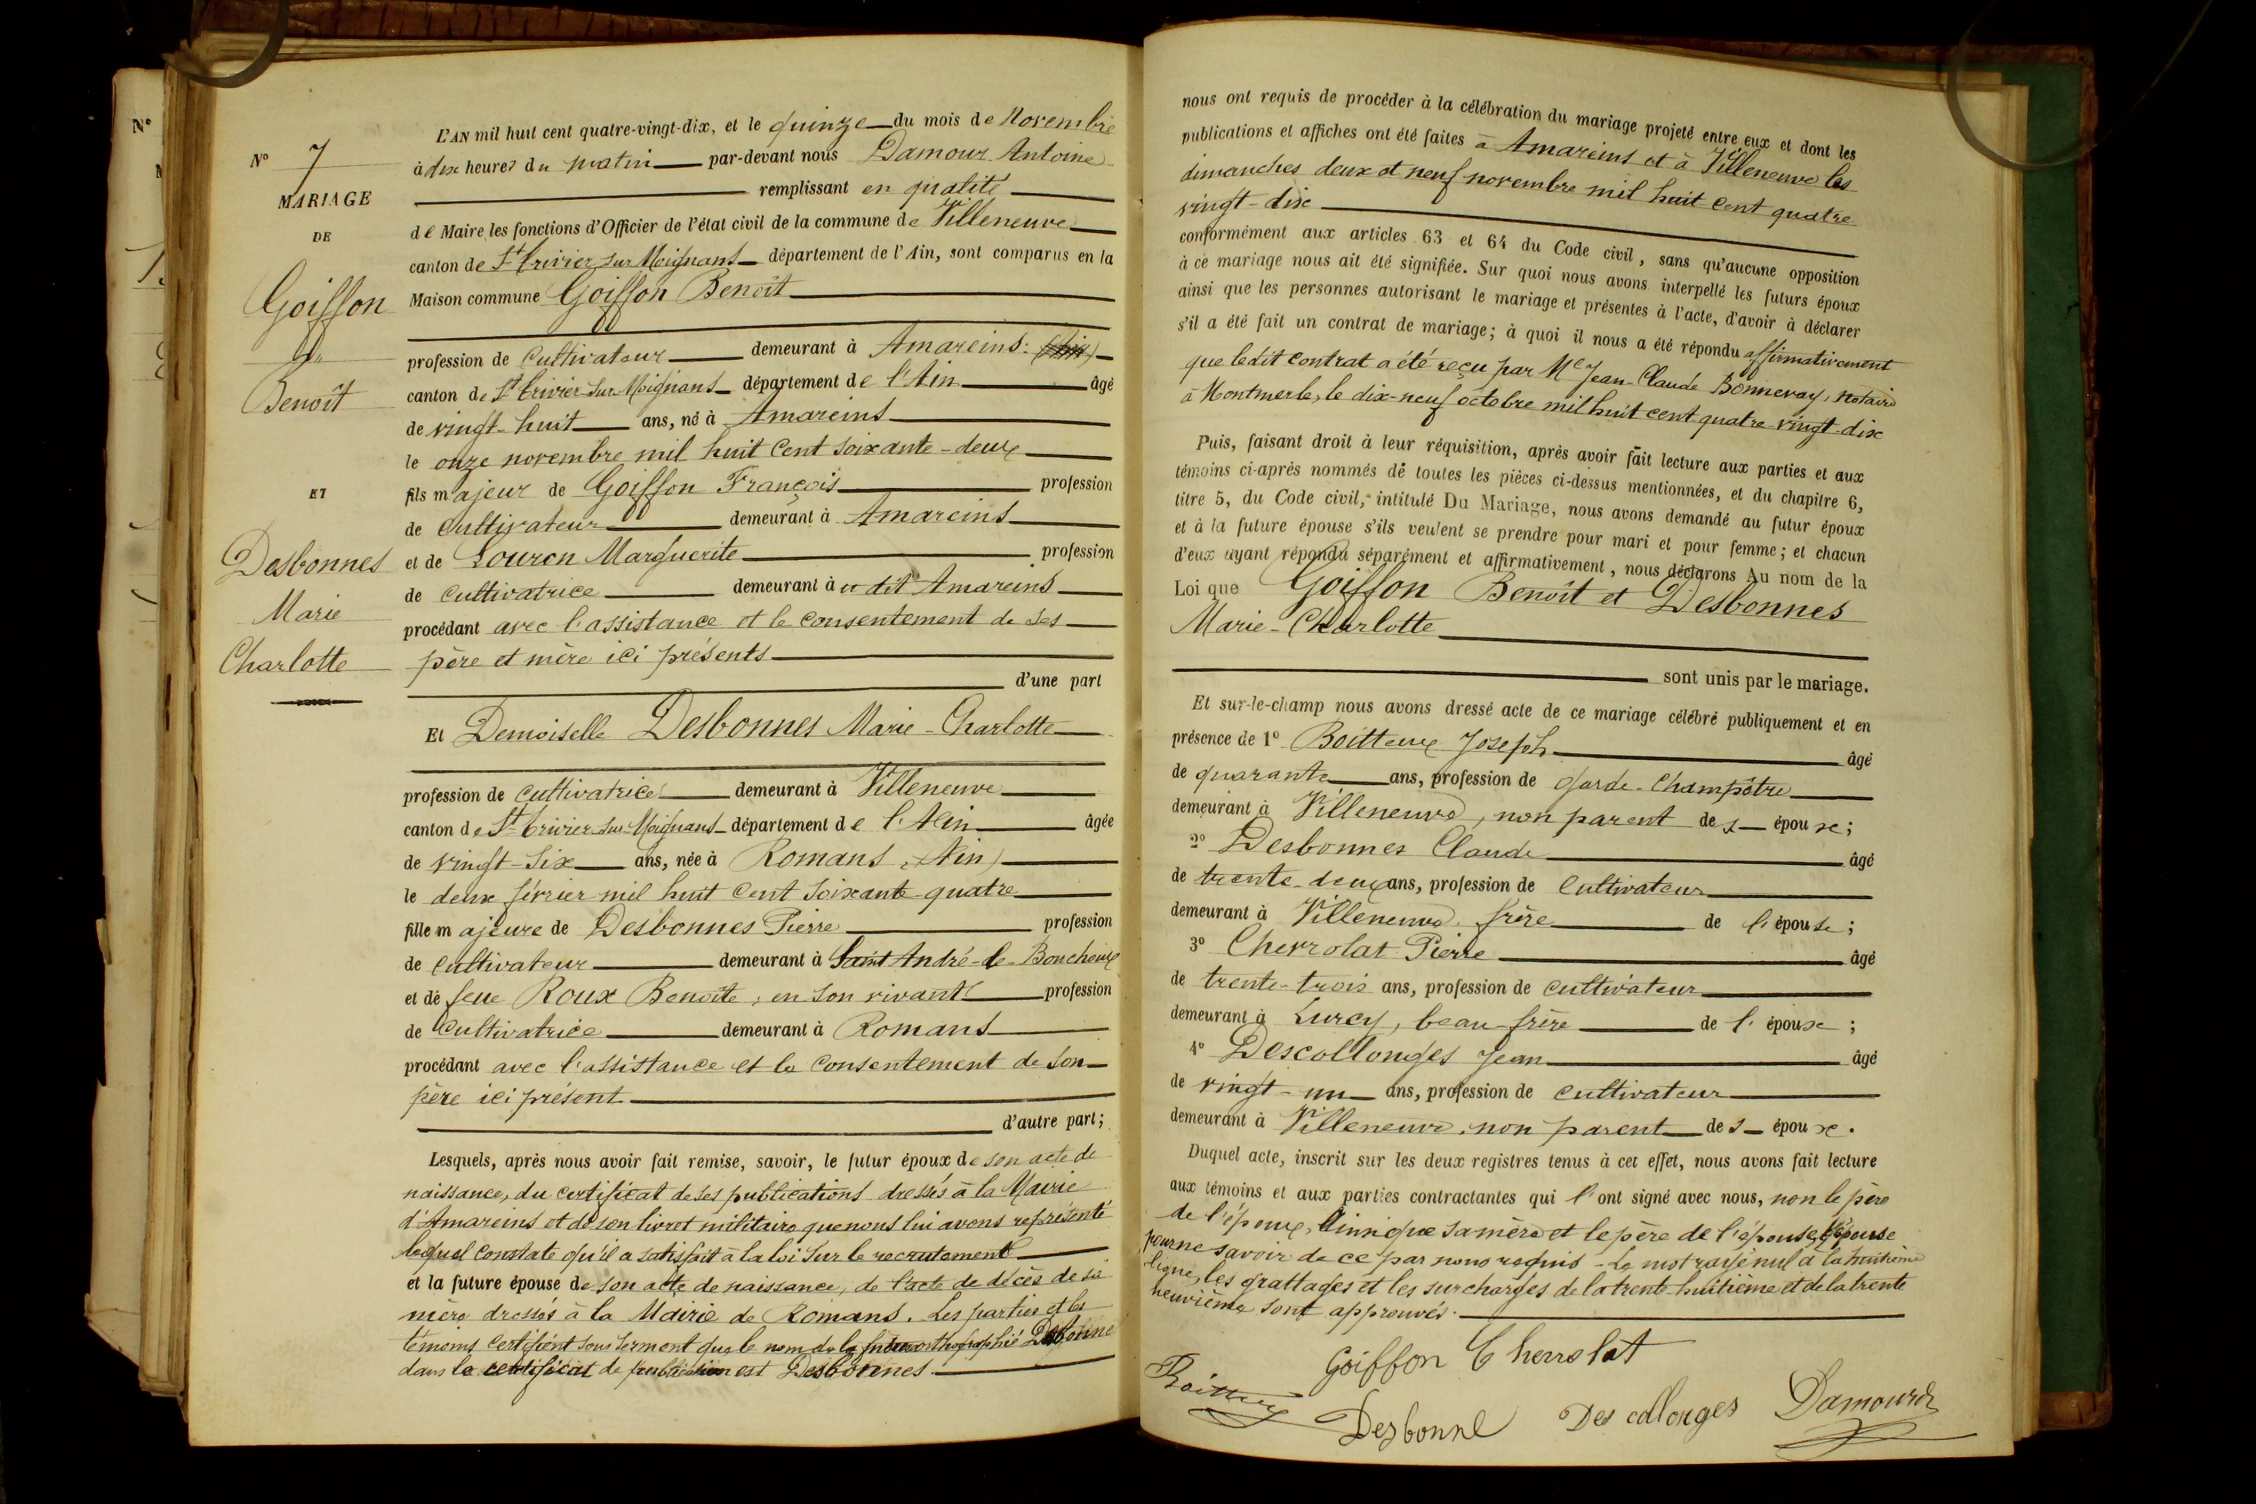 N°
N° 7
MARIAGE
DE
Goiffon
Benoît
ET
Desbonnes
Marie
Charlotte
L'AN mil huit cent quatre-vingt-dix, et le quinze du mois de Novembre
à dix heures du matin par-devant nous Damour Antoine
remplissant en qualité
de Maire les fonctions d'Officier de l'état civil de la commune de Villeneuve
canton de St Trivier sur Moignans département de l'Ain, sont comparus en la
Maison commune Goiffon Benoît
profession de cultivateur demeurant à Amareins
canton de St Trivier sur Moignans département de l'Ain âgé
de vingt-huit ans, né à Amareins
le onze novembre mil huit cent soixante-deux
fils majeur de Goiffon François profession
de cultivateur demeurant à Amareins
et de Louron Marguerite profession
de cultivatrice demeurant à u dit Amareins
procédant avec l'assistance et le consentement de ses
père et mère ici présents
d'une part
Et Demoiselle Desbonnes Marie-Charlotte
profession de cultivatrice demeurant à Villeneuve
canton de St Trivier sur Moignans département de l'Ain âgée
de vingt-six ans, née à Romans (Ain)
le deux février mil huit cent soixante-quatre
fille majeure de Desbonnes Pierre profession
de cultivateur demeurant à Saint André-le-Boucheux
et de feue Roux Benoîte, en son vivant profession
de cultivatrice demeurant à Romans
procédant avec l'assistance et le consentement de son
père ici présent
d'autre part;
Lesquels, après nous avoir fait remise, savoir, le futur époux de son acte de
naissance, du certificat de ses publications dressés à la Mairie
d'Amareins et de son livret militaire que nous lui avons représenté
lequel constate qu'il a satisfait à la loi sur le recrutement
et la future épouse de son acte de naissance, de l'acte de décès de sa
mère dressés à la Mairie de Romans. Les parties et les
témoins certifient sous serment que le nom de la future orthographié Desbonne
dans le certificat de publication est Desbonnes
nous ont requis de procéder à la célébration du mariage projeté entre eux et dont les
publications et affiches ont été faites à Amareins et à Villeneuve les
dimanches deux et neuf novembre mil huit cent quatre
vingt-dix
conformément aux articles 63 et 64 du Code civil, sans qu'aucune opposition
à ce mariage nous ait été signifiée. Sur quoi nous avons interpellé les futurs époux
ainsi que les personnes autorisant le mariage et présentes à l'acte, d'avoir à déclarer
s'il a été fait un contrat de mariage; à quoi il nous a été répondu affirmativement
que ledit contrat a été reçu par Me Jean-Claude Bonnevay, notaire
à Montmerle, le dix-neuf octobre mil huit cent quatre-vingt-dix
Puis, faisant droit à leur réquisition, après avoir fait lecture aux parties et aux
témoins ci-après nommés de toutes les pièces ci-dessus mentionnées, et du chapitre 6,
titre 5, du Code civil, intitulé Du Mariage, nous avons demandé au futur époux
et à la future épouse s'ils veulent se prendre pour mari et pour femme; et chacun
d'eux ayant répondu séparément et affirmativement, nous déclarons Au nom de la
Loi que Goiffon Benoît et Desbonnes
Marie-Charlotte
sont unis par le mariage.
Et sur-le-champ nous avons dressé acte de ce mariage célébré publiquement et en
présence de 1° Boitteux Joseph âgé
de quarante ans, profession de garde-champêtre
demeurant à Villeneuve, non parent des époux;
2° Desbonnes Claude âgé
de trente-deux ans, profession de cultivateur
demeurant à Villeneuve, frère de l'épouse;
3° Cherrolat Pierre âgé
de trente-trois ans, profession de cultivateur
demeurant à Lurcy, beau-frère de l'époux;
4° Descollonges Jean âgé
de vingt-un ans, profession de cultivateur
demeurant à Villeneuve, non parent des époux.
Duquel acte, inscrit sur les deux registres tenus à cet effet, nous avons fait lecture
aux témoins et aux parties contractantes qui l'ont signé avec nous, non le père
de l'époux, ainsi que sa mère et le père de l'épouse, l'épouse
pour ne savoir de ce par nous requis - Le mot rayé nul à la huitième
ligne, les grattages et les surcharges de la trente-huitième et de la trente
neuvième sont approuvés.
Goiffon Cherrolat
Boitteux
Desbonne Des collonges Damour